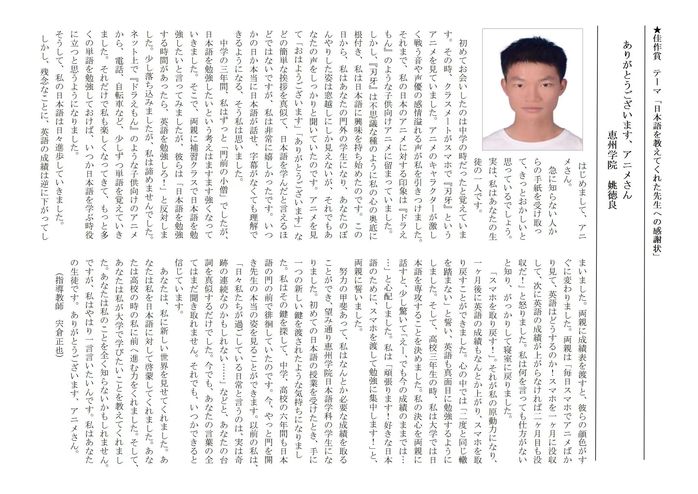 ★佳作賞　テーマ「日本語を教えてくれた先生への感謝状」
ありがとうございます、アニメさん
恵州学院　姚徳良
はじめまして、アニ
メさん。
急に知らない人か
らの手紙を受け取っ
て、きっとおかしいと
思っているでしょう。
実は、私はあなたの生
徒の一人です。
初めてお会いしたのは中学の時だったと覚えていま
す。その時、クラスメートがスマホで『刃牙』という
アニメを見ていました。アニメのキャラクターが激し
く戦う音や声優の感情溢れる声が私を引きつけました。
それまで、私の日本のアニメに対する印象は『ドラえ
もん』のような子供向けアニメに留まっていました。
しかし、『刃牙』は不思議な種のように私の心の奥底に
根付き、私は日本語に興味を持ち始めたのです。この
日から、私はあなたの門外の学生になり、あなたのぼ
んやりした姿は窓越しにしか見えないが、それでもあ
なたの声をしっかりと聞いていたのです。アニメを見
て「おはようございます」「ありがとうございます」な
どの簡単な挨拶を真似て、日本語を学んだと言えるほ
どではないですが、私は非常に嬉しかったです。いつ
かの日か本当に日本語が話せ、字幕がなくても理解で
きるようになる、そう私は思いました。
中学の三年間、私はずっと「門前の小僧」でしたが、
日本語を勉強したいという考えはますます強くなって
いきました。そこで、両親に補習クラスで日本語を勉
強したいと言ってみましたが、彼らは「日本語を勉強
する時間があったら、英語を勉強しろ！」と反対しま
した。少し落ち込みましたが、私は諦めませんでした。
ネット上で『ドラえもん』のような子供向けのアニメ
から、電話、自転車など、少しずつ単語を覚えていき
ました。それだけで私も楽しくなってきて、もっと多
くの単語を勉強しておけば、いつか日本語を学ぶ時役
に立つと思うようになりました。
そうして、私の日本語は日々進歩していきました。
しかし、残念なことに、英語の成績は逆に下がってし
まいました。両親に成績表を渡すと、彼らの顔色がす
ぐに変わりました。両親は「毎日スマホでアニメばか
り見て、英語はどうするのか！スマホを一ヶ月に没収
して、次に英語の成績が上がらなければ二ヶ月目も没
収だ！」と怒りました。私は何を言っても仕方がない
と知り、がっかりして寝室に戻りました。
「スマホを取り戻す！」それが私の原動力になり、
一ヶ月後に英語の成績もなんとか上がり、スマホを取
り戻すことができました。心の中では「二度と同じ轍
を踏まない」と誓い、英語も真面目に勉強するように
しました。そして、高校三年生の時、私は大学では日
本語を専攻することを決めました。私の決心を両親に
話すと、少し驚いて「えー、でも今の成績のままでは…
…」と心配しました。私は「頑張ります！好きな日本
語のために、スマホを渡して勉強に集中します！」と、
両親に誓いました。
努力の甲斐あって、私はなんとか必要な成績を取る
ことができ、望み通り恵州学院日本語学科の学生にな
りました。初めての日本語の授業を受けたとき、手に
一つの新しい鍵を渡されたような気持ちになりまし
た。私はその鍵を探して、中学、高校の六年間も日本
語の門の前で徘徊していたのです。今、やっと門を開
き先生の本当の姿を見ることができます。以前の私は、
「日々私たちが過ごしている日常と言うのは、実は奇
跡の連続なのかもしれない……」などと、あなたの台
詞を真似するだけでした。今でも、あなたの言葉の全
てはまだ聞き取れません。それでも、いつかできると
信じています。
あなたは、私に新しい世界を見せてくれました。あ
なたは私を日本語に対して啓蒙してくれました。あな
たは高校の時の私に前へ進む力をくれました。そして、
あなたは私が大学で学びたいことを教えてくれまし
た。あなたは私のことを全く知らないかもしれません。
ですが、私はやはり一言言いたいんです。私はあなた
の生徒です。ありがとうございます、アニメさん。
（指導教師　宍倉正也）